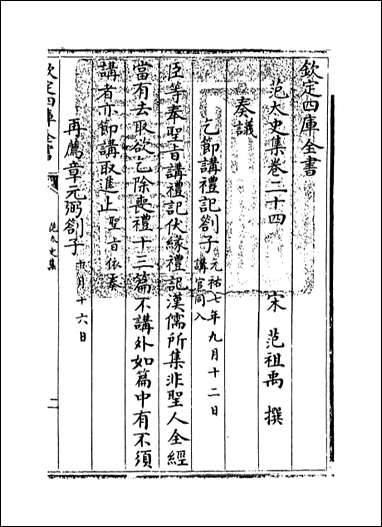 欽定四庫全書
范太史集卷二十四
宋 范祖禹 撰
奏議
乞節講禮記劄子元祐七年九月十二日講官同入
臣等奉聖旨講禮記伏緣禮記漢儒所集非聖人全經
當有去取欲乞除喪禮十三篇不講外如篇中有不須
講者亦節講取進止聖旨依奏
再薦章元弼劄子十六日
欽定四庫全書
范太史集